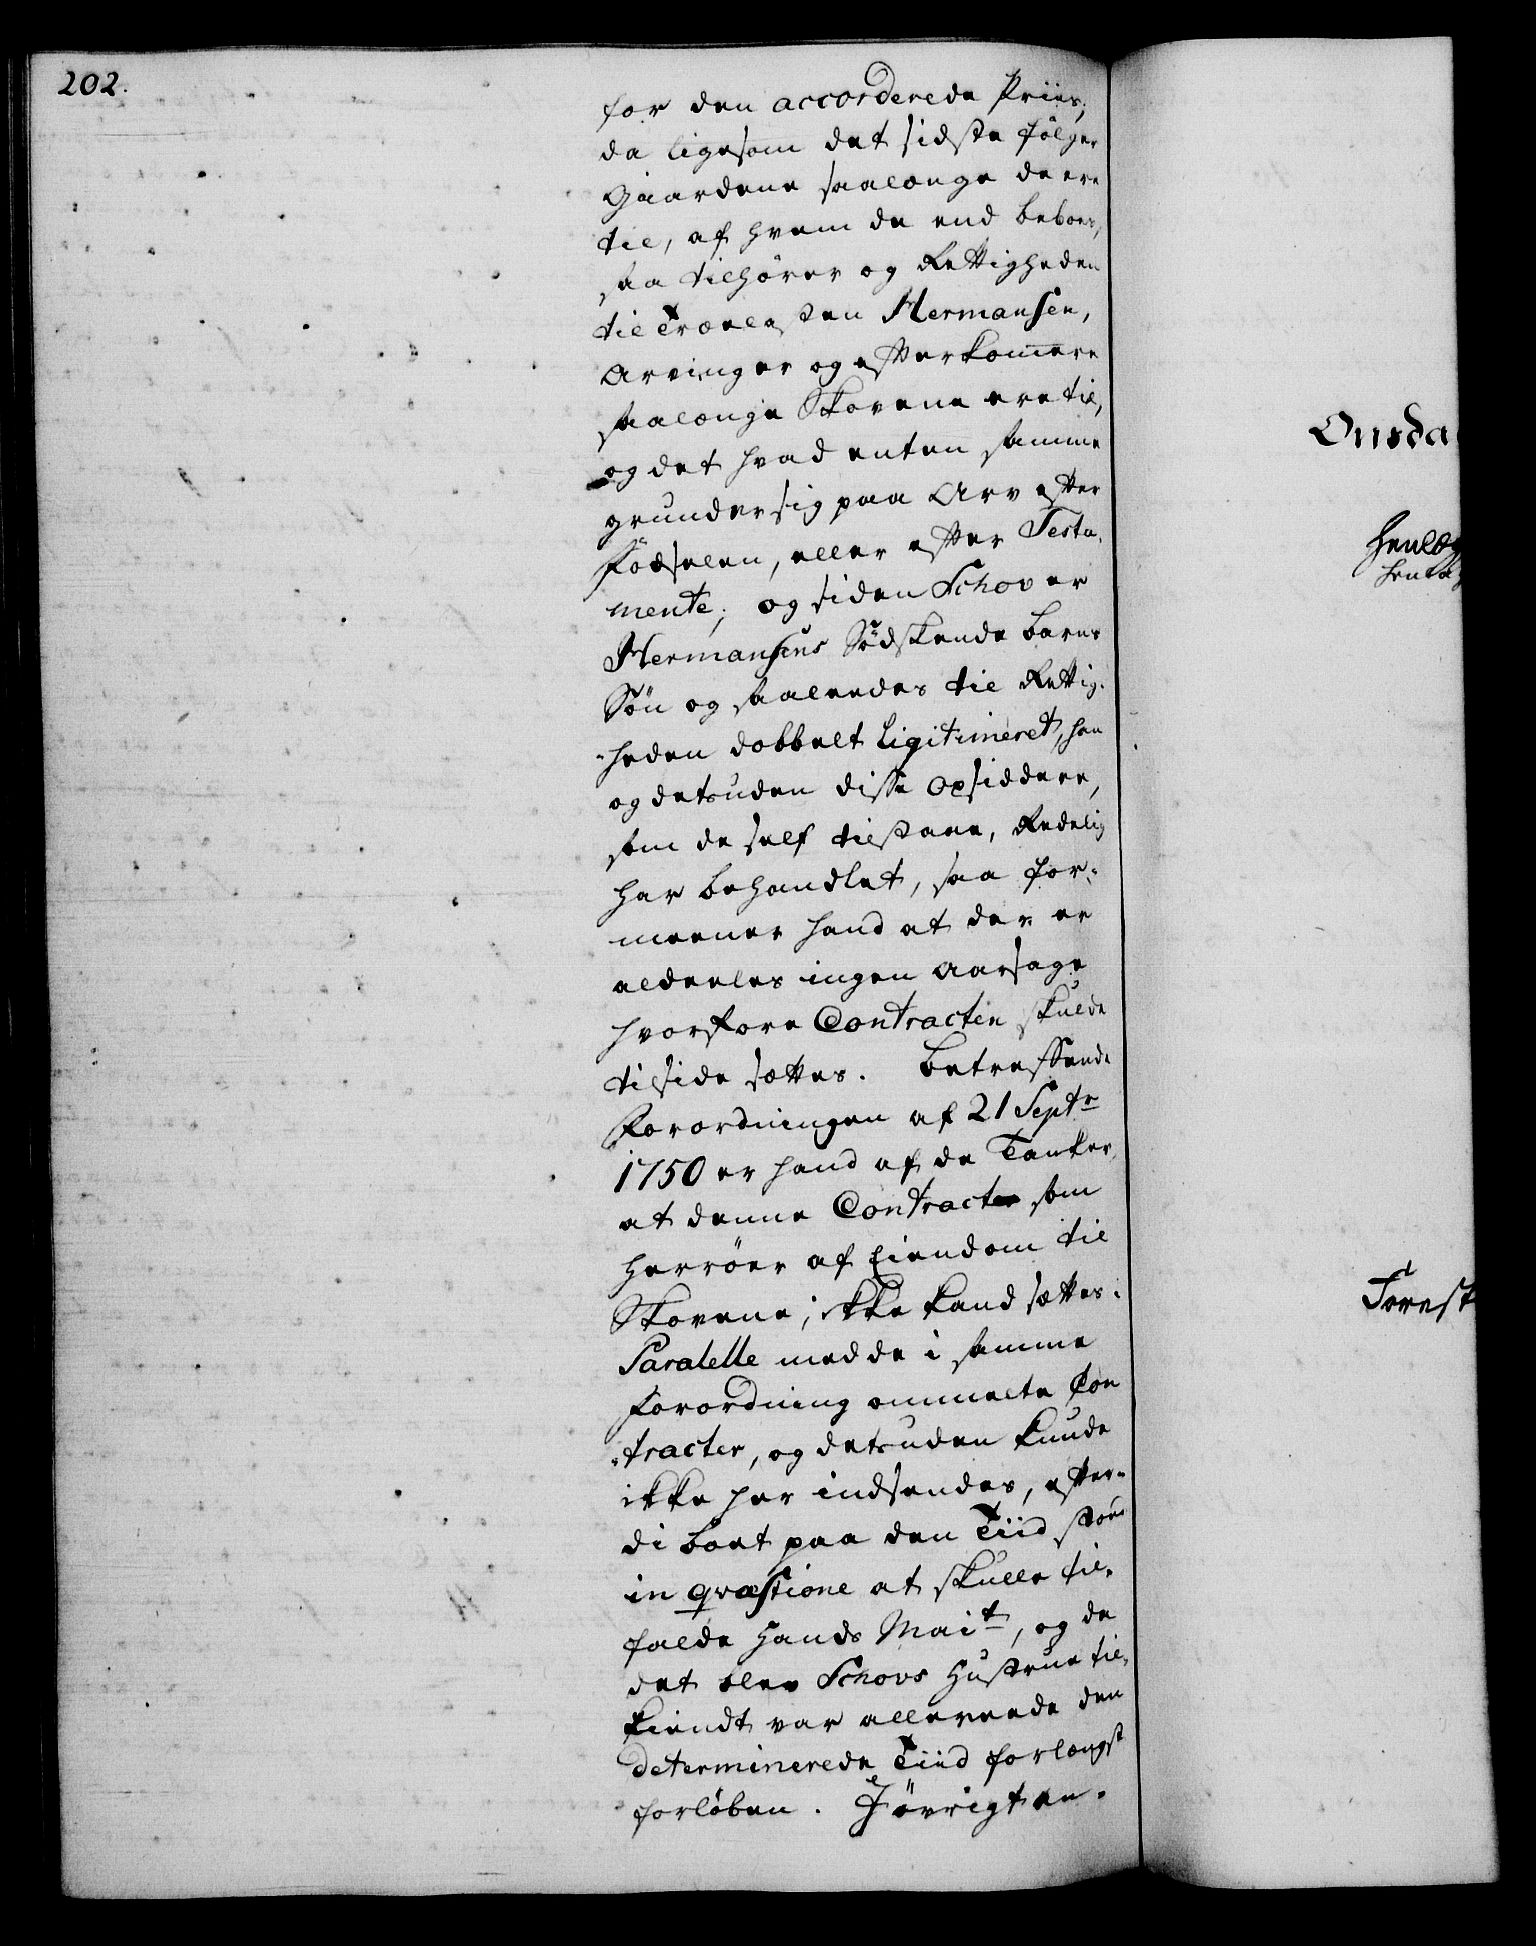 202.
for den accorderede Priis,
da ligesom det sidste følger
Gaardene saalænge de ere
til, af hvem de end beboes,
saa tilhører og Rettigheden
til Trælasten Hermansen,
Arvinger og efterkommere
saalænge Skovene ere til,
og det hvad enten samme
grunder sig paa Arv efter
Fødselen, eller efter Testa-
mente; og siden Schov er
Hermansens Södskende barns
Søn og saaledes til Rettig-
-heden dobbelt Ligitimeret, han
og desuden disse Opsiddere,
som de self tilstaae, Redelig
har behandlet, saa for-
meener hand at der er
aldeeles ingen Aarsage
hvorfore Contracten skulde
tilside sættes. Betreffende
Forordningen af 21 Septr
1750 er hand af de Tanker,
at denne Contract som
herröer af Eiendom til
Skovene, ikke kand sættes i
Paralelle med de i samme
Forordning ommelte Con
-tracter, og desuden kunde
ikke her indsendes, efter-
di boet paa den Tiid stoed
in qvæstione at skulle til-
falde Hands Mait, og da
det blev Schovs Hustrue til-
kiendt var allereede den
determinerede Tiid forlængst
forløben. I øvrigt an-
Onsda
Henlæg
henlæg
Forest